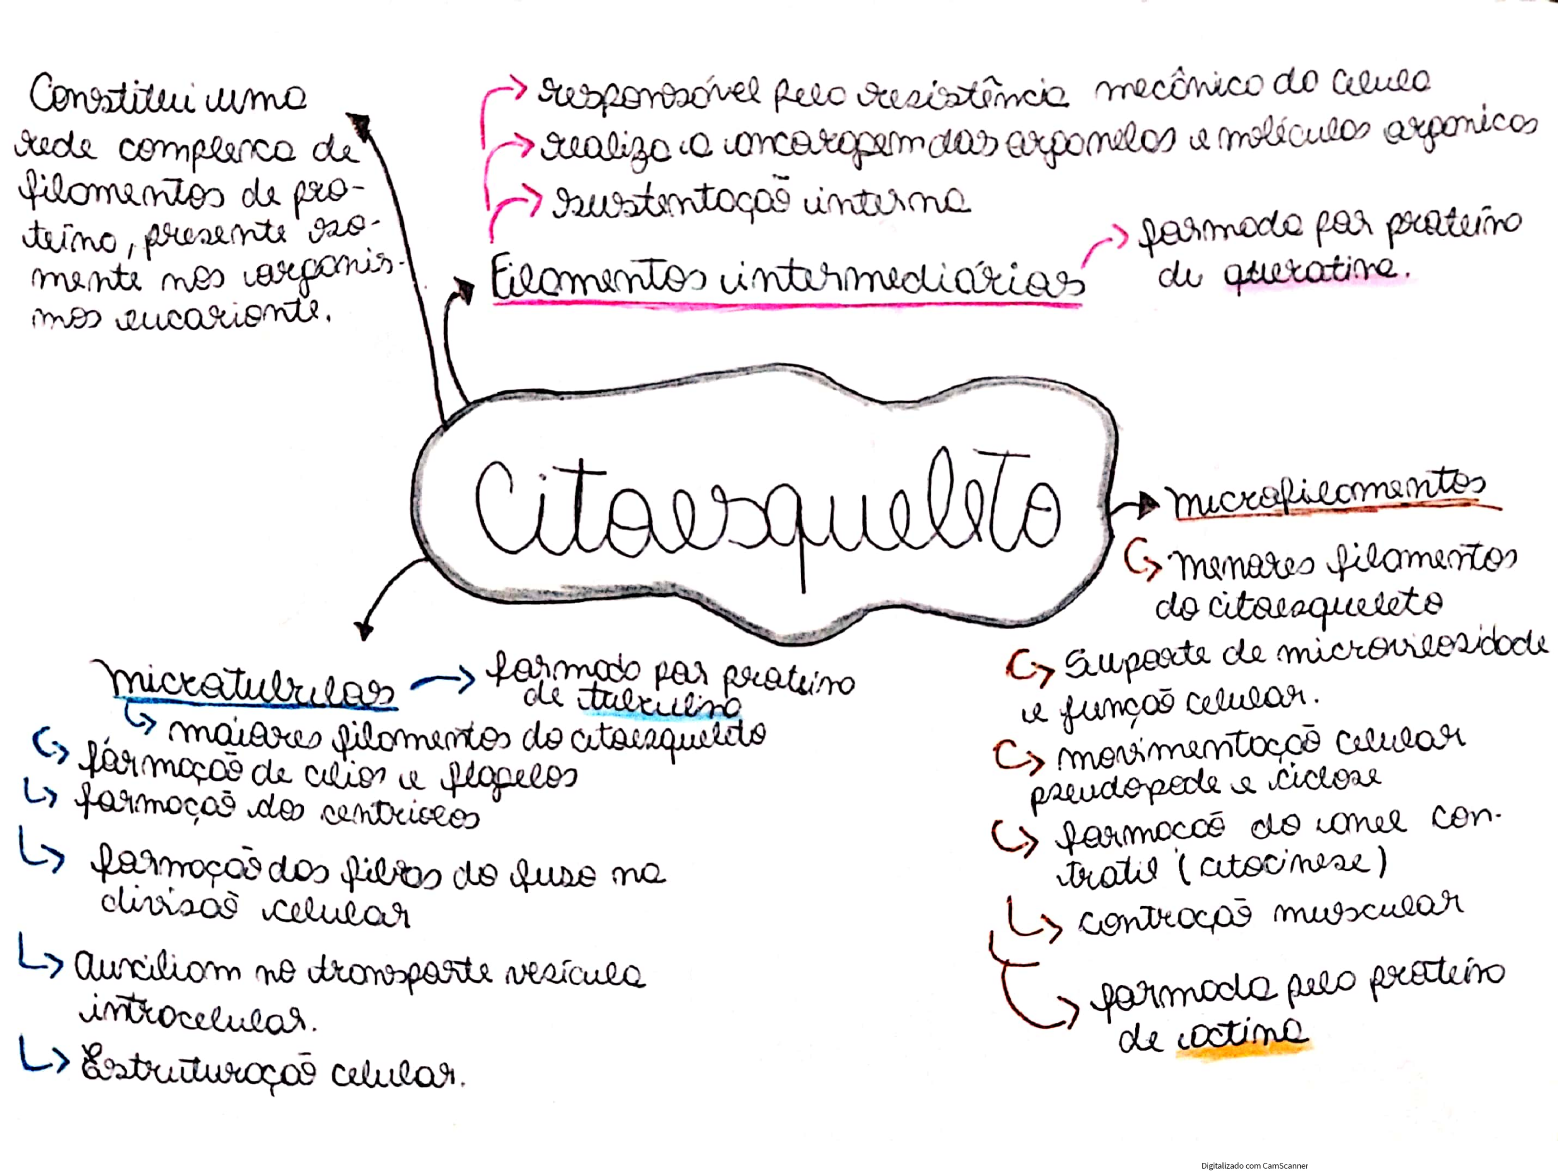 Constitui uma
rede complexa de
filamentos de pro-
teína, presente so-
mente nos organis-
mos eucarionte.
responsável pela resistência mecânica da célula
realiza a ancoragem das organelas e moléculas orgânicas
sustentação interna
Filamentos intermediários
formada por proteína
de queratina.
Citoesqueleto
microfilamentos
menores filamentos
do citoesqueleto
Suporte de microvilosidade
e função celular.
movimentação celular
pseudopode e ciclose
formacão do anel con-
tratil (citocinese)
contração muscular
formada pela proteína
de actina
microtubulos
formado por proteína
de tubulina
maiores filamentos do citoesqueleto
formação de cilios e flagelos
formação dos centriolos
formação das fibras do fuso na
divisão celular
Auxiliam no transporte vesícula
intracelular.
Estruturação celular.
Digitalizado com CamScanner